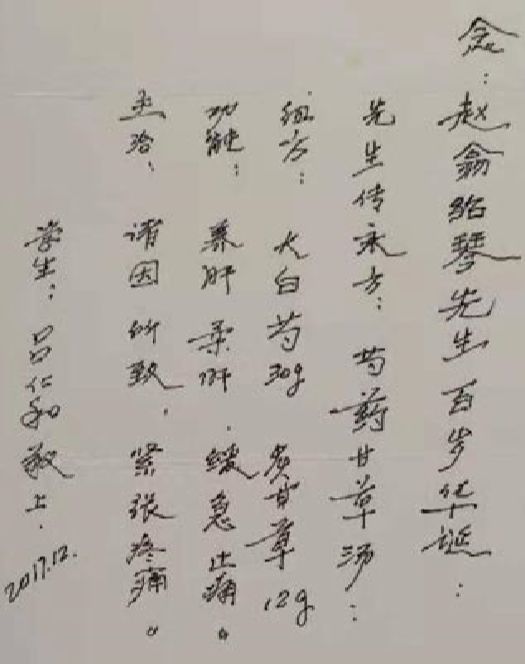 念：赵翕绍琴先生百岁华诞：
先生传承方：芍药甘草汤：
组方：大白芍30g 炙甘草12g
功能：养肝柔肝，缓急止痛。
主治：诸因所致，紧张疼痛。
学生：吕仁和敬上．2017.12.